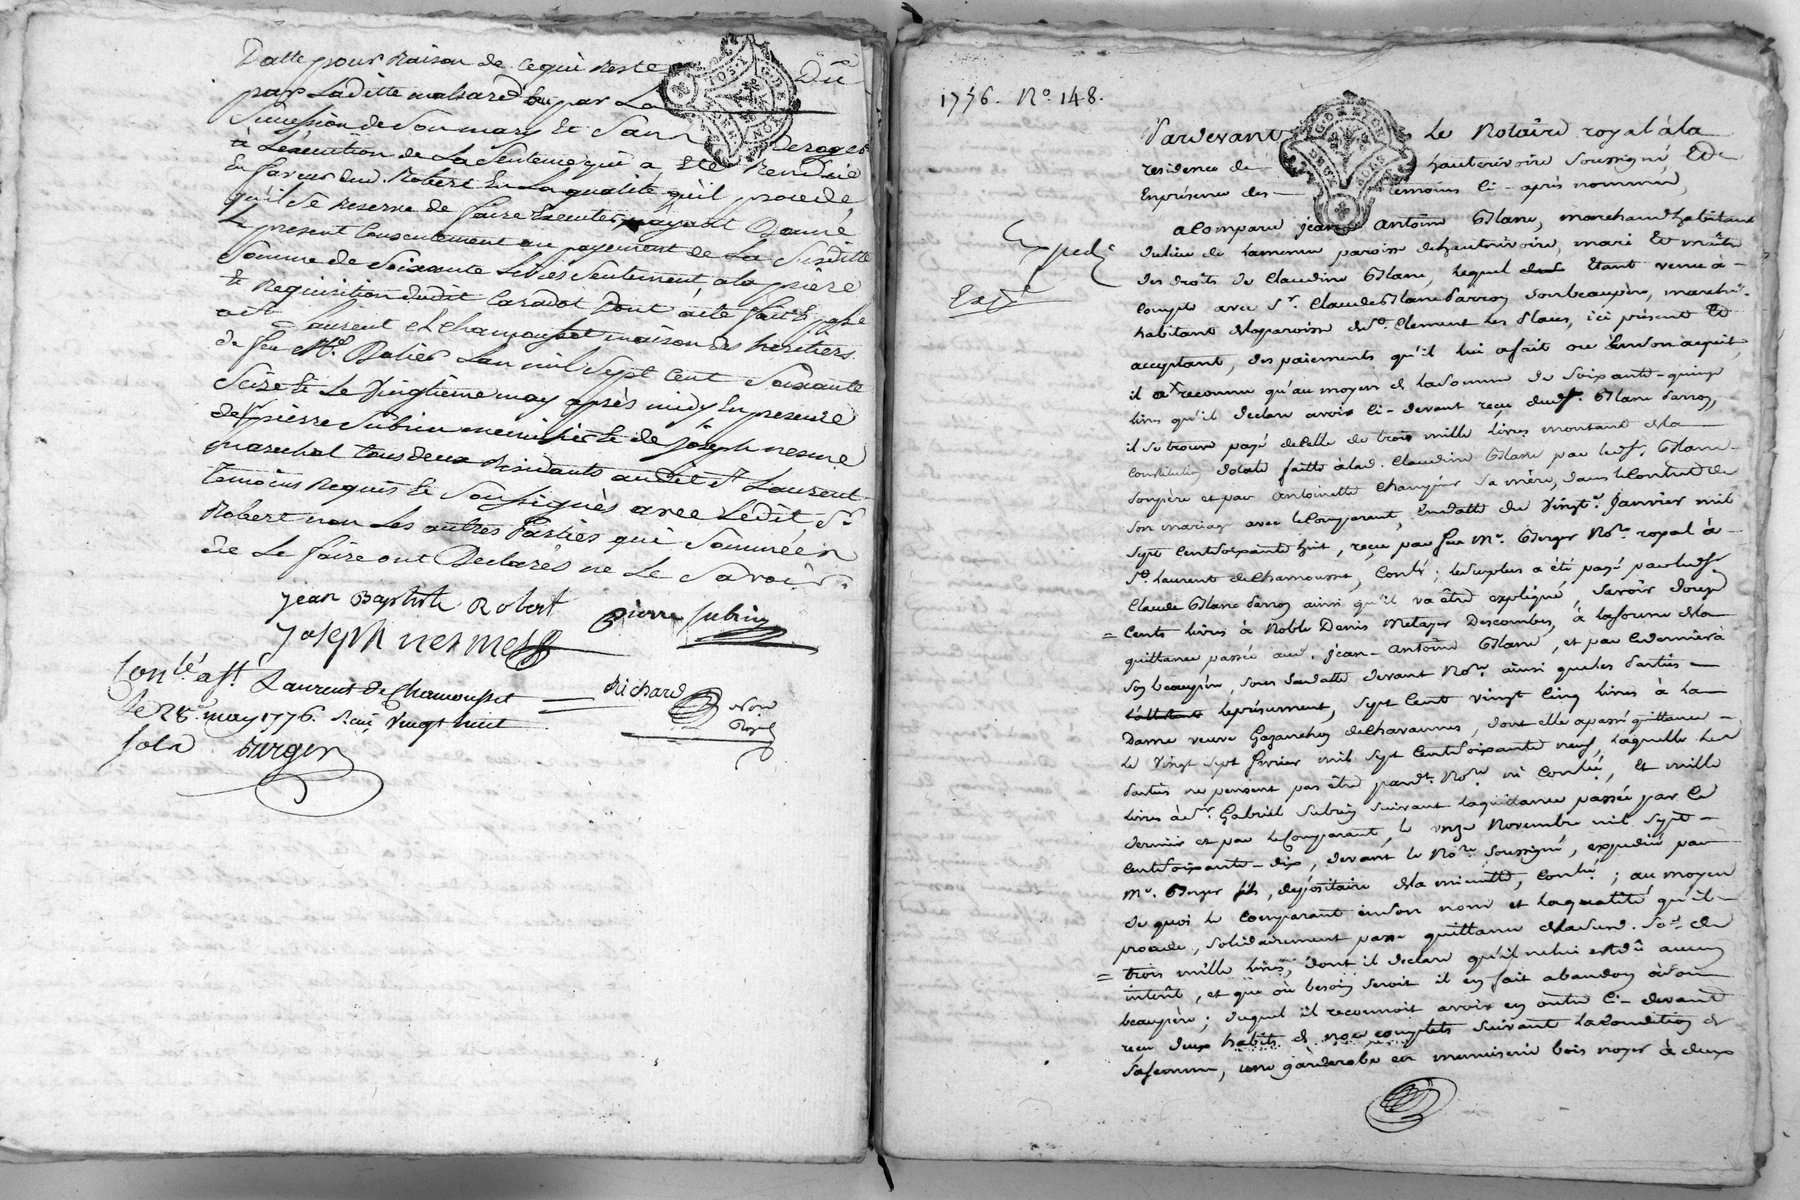 Datte pour Raison de ce qui reste Dû
par Laditte par La
Succession de Son mary Et Sans Deroger
à L'execution de La Sentence qui a Eté Rendüe
En faveur dud. Robert En La qualité qu'il procede
qu'il Se Reserve de faire Executer n'ayant Donné
Le present Consentement au payement de La Susditte
Somme de Soixante Livres Seulement, a la priere
Et Requisition dudit Caradot Dont acte fait Et passé
a St Laurent de Chamousset maison des heretiers
de feu Me Balier Lan mil Sept Cent Soixante
Seize Et Le Vingtieme may après midy En presence
de pierre Subrin menuisier Et de joseph nesme
marechal tous deux Residants audit St Laurent
temoins Requis Et Soussignés avec Ledit Sr
Robert non Les autres Parties qui Sommées
de Le faire ont Declarés ne Le Savoir
jean Baptiste Robert Pierre Subrin
joseph nesme
Conlé à St Laurent de Chamousset Richard Nore
le 28 may 1776. Reçu Vingt huit Royal
sols Burgin
1776. No. 148.
Pardevant Le Notaire royal à la
residence de hauterivoire Soussigné Et
En présence des temoins Ci-après nommés,
a Comparu jean Antoine Blanc, marchand habitant
du lieu de paroisse de hauterivoire, mari Et maître
des droits de Claudine Blanc, lequel Etant venu à
Compte avec Sr. Claude Blanc Parron Son beaupère, marchd.
habitant de la paroisse de St. Clement Les Places, ici présent Et
acceptant, des paiements qu'il lui a fait ou En Son acquit,
il a reconnu qu'au moyen de la Somme de Soixante-quinze
livres qu'il declare avoir Ci-devant reçu dud. Sr. Blanc Parron,
il Se trouve payé de Celle de trois mille livres montant de la
Constitution dotale faitte à lad. Claudine Blanc par led. Sr. Blanc
Son père et par Antoinette Sa mère, dans le Contrat de
Son mariage avec le Comparant, En datte du Vingt. Janvier mil
Sept Cent Soixante huit, reçu par feu Me. Berger Nore. royal à
St. Laurent de Chamousset, Conlé; le Surplus a été payé par led. Sr
Claude Blanc Parron ainsi qu'il va être expliqué, Savoir Douze
Cents livres à Noble Denis Metayer Descombes, à la forme de la
quittance passée aud. Jean-Antoine Blanc, et par Ce dernier à
Son beaupère, Sous Sa datte devant Nore. ainsi que les Parties
le présument, Sept Cent Vingt Cinq livres à la
Dame veuve de Chavannes, dont elle a passé quittance
Le Vingt Sept fevrier mil Sept Cent Soixante neuf, laquelle Les
Parties ne pensent pas être pardt. Nore ni Conlée, Et mille
livres à Sr. Gabriel Subrin Suivant la quittance passée par Ce
dernier et par le Comparant, le onze Novembre mil Sept
Cent Soixante-dix, devant le Nore. Soussigné, expediée par
Me. Berger fils, depositaire de la minutte, Conlé; au moyen
de quoi le Comparant En Son nom et la qualité qu'il
procede, Solidairement passe quittance de lad. Se. de
trois mille livres, dont il declare qu'il ne lui est dû aucun
interêt, et que où besoin Seroit il en fait abandon à Son
beaupère; duquel il reconnoit avoir en outre Ci-devant
reçu deux habits de noce complets Suivant la Condition de
Sa femme, une garderobe en menuiserie bois noyer à deux
Expedié